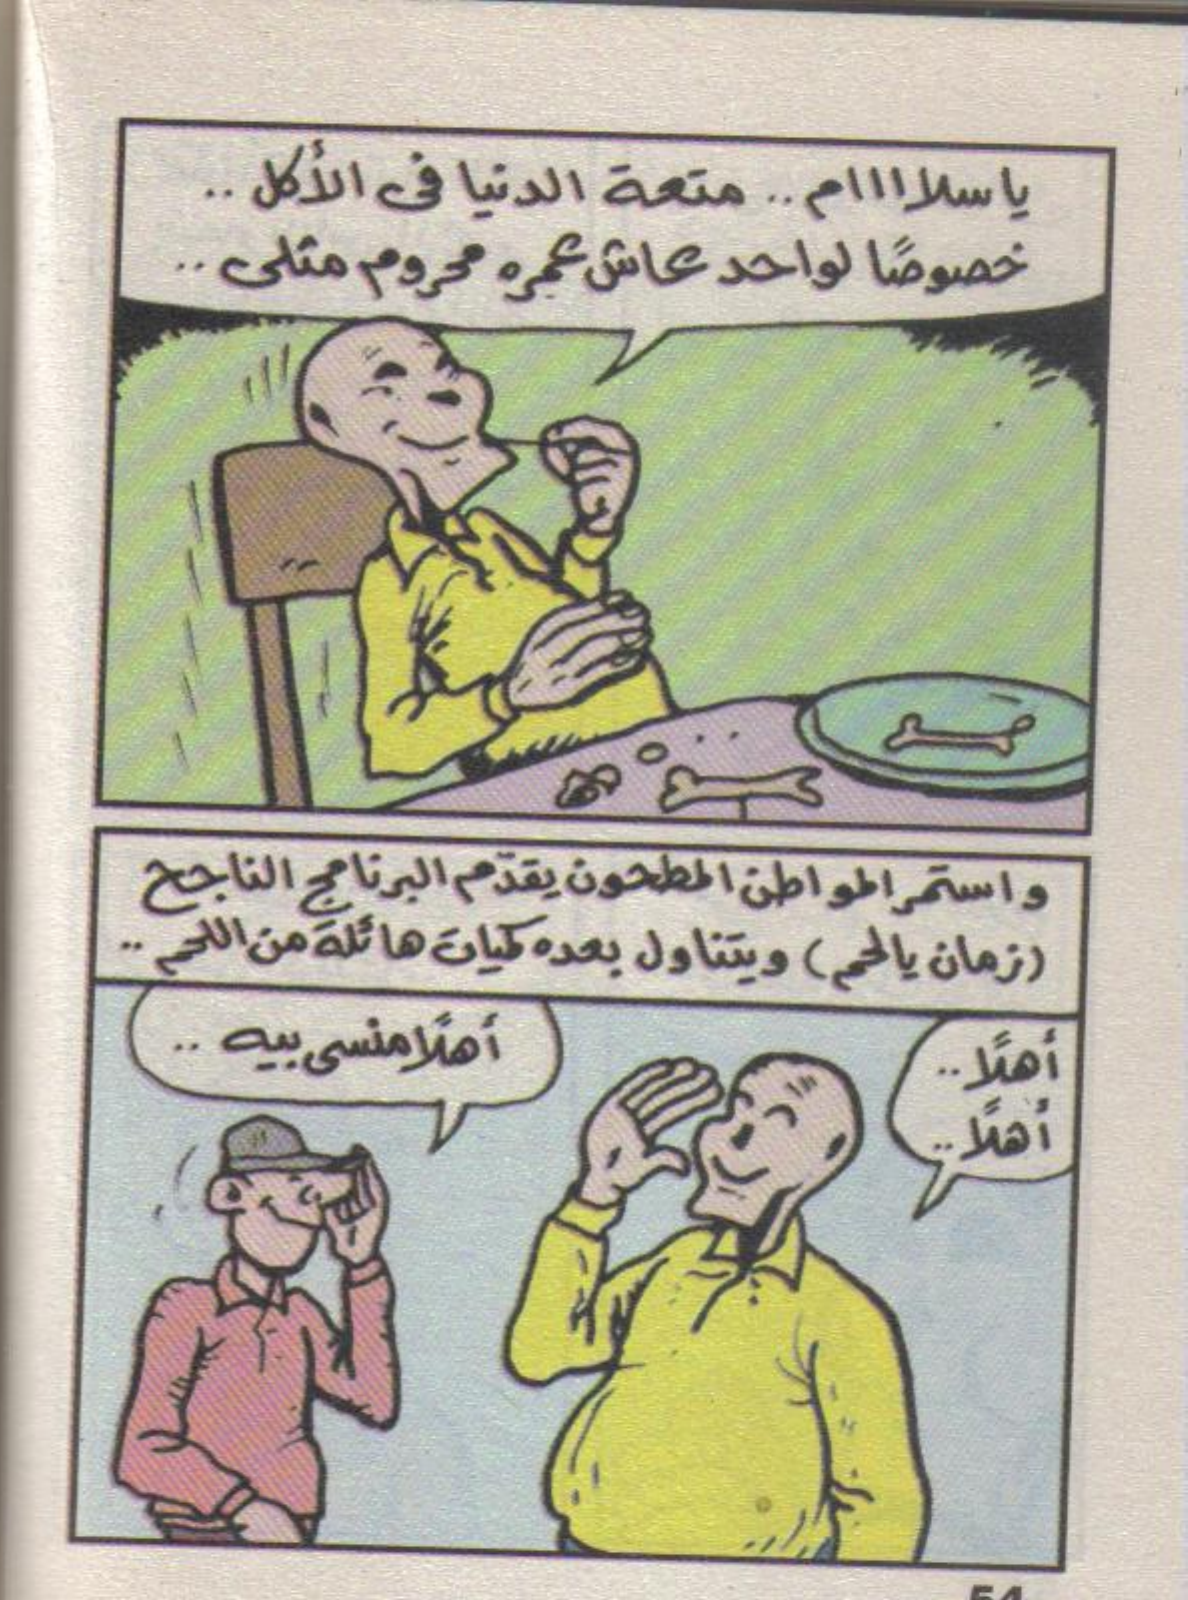 ياسلااااام .. متعة الدنيا فى الأكل ..
خصوصًا لواحد عاش عمره محروم مثلى ..
واستمر المواطن المطحون يقدّم البرنامج الناجح
(زمان يالحم) ويتناول بعده كميات هائلة من اللحم ..
أهلًا ..
أهلًا ..
أهلًا منسى بيه ..
54